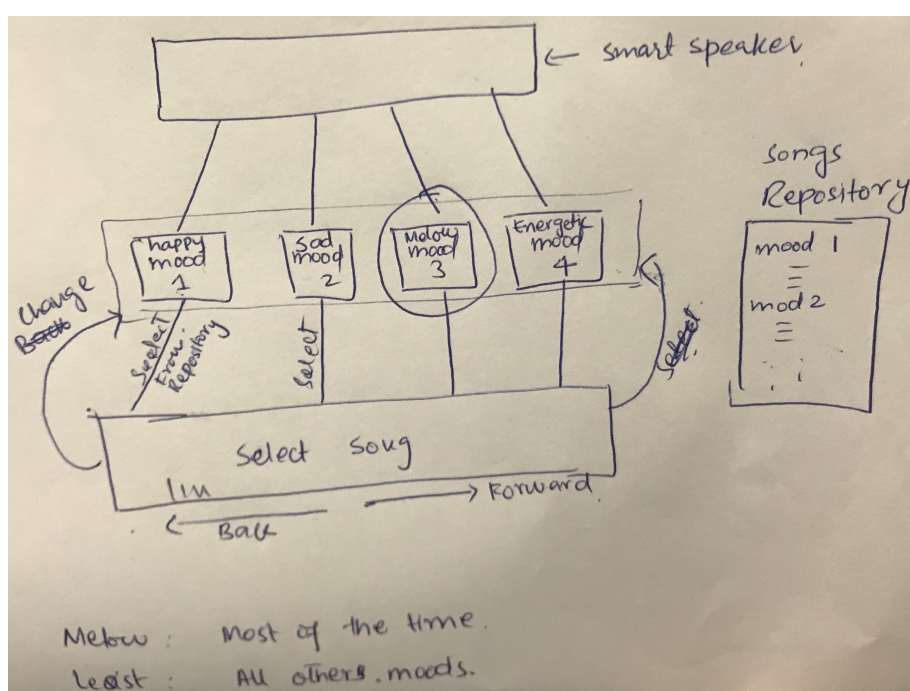 ← smart speaker.
songs
Repository
happy
mood
1
Sad
mood
2
Melow
mood
3
Energetic
mood
4
mood 1
mod 2
Change
Back
Seelect
From
Repository
Select
Select
Select Song
→ Forward
← Back
Melow : Most of the time.
Least : All others. moods.